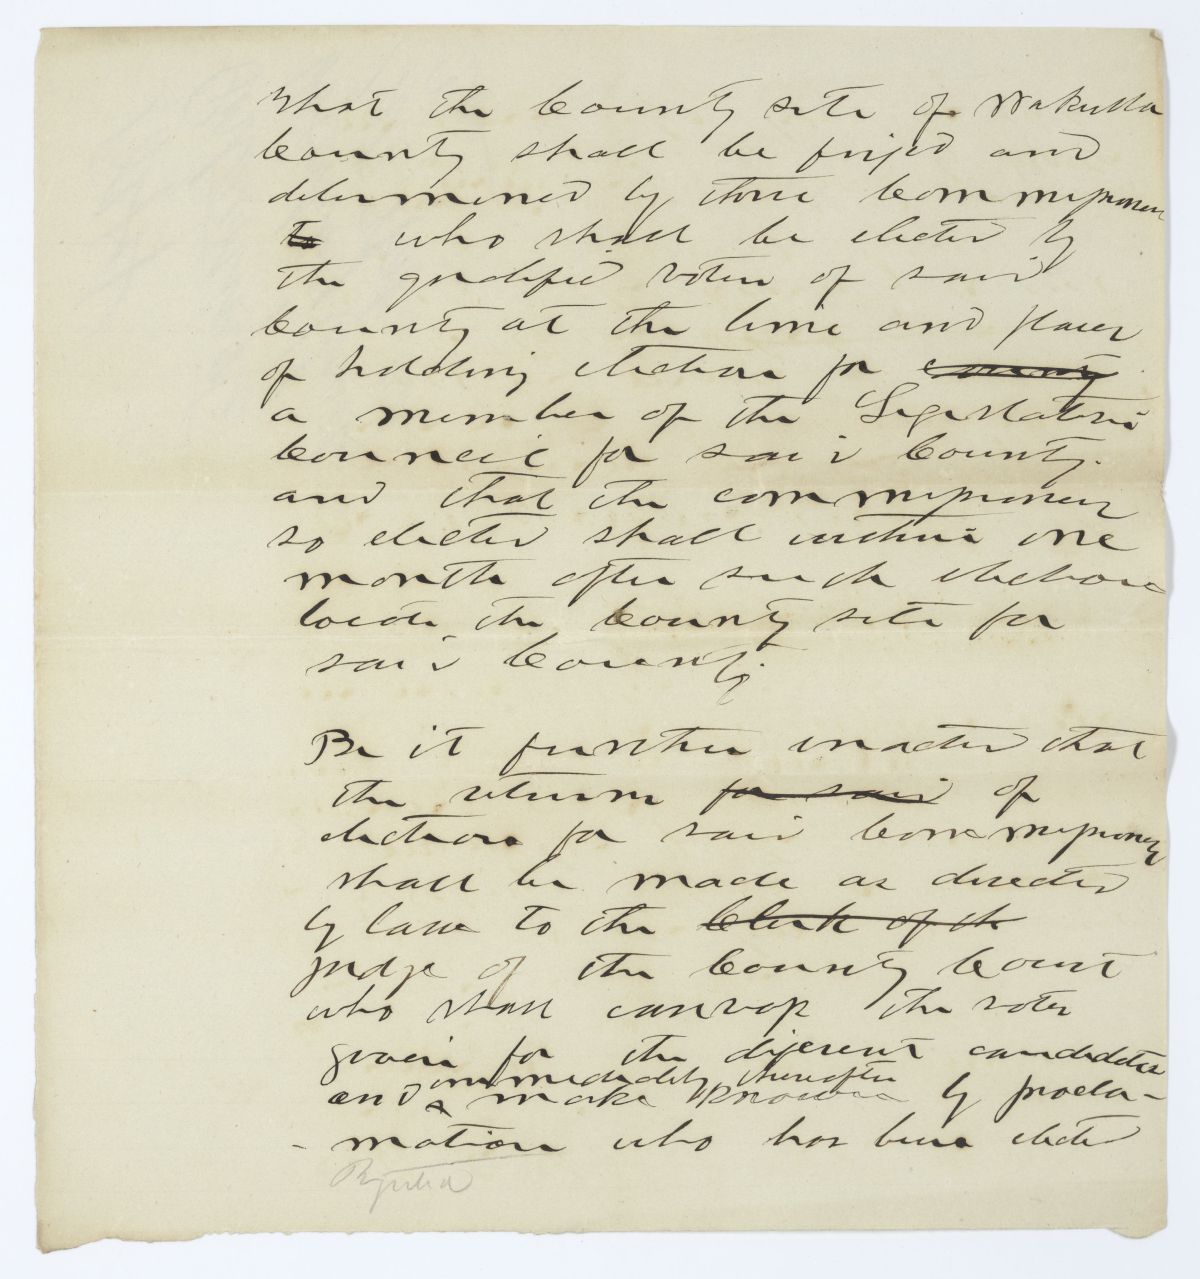 That the County site of Wakulla
County shall be fixed and
determined by three Commissioners
to who shall be elected by
the qualified voters of said
County at the time and places
of holding elections for county
a member of the Legislative
Council for said County.
and that the commissioners
so elected shall within one
month after such elections
locate the County site for
said County.
Be it further enacted that
the returns for said of
elections for said Commissioners
shall be made as directed
by law to the Clerk of th
judge of the County Court
who shall canvass the votes
given for the different candidates
immediately thereafter
and make known by procla-
-mation who has been elected
Rejected